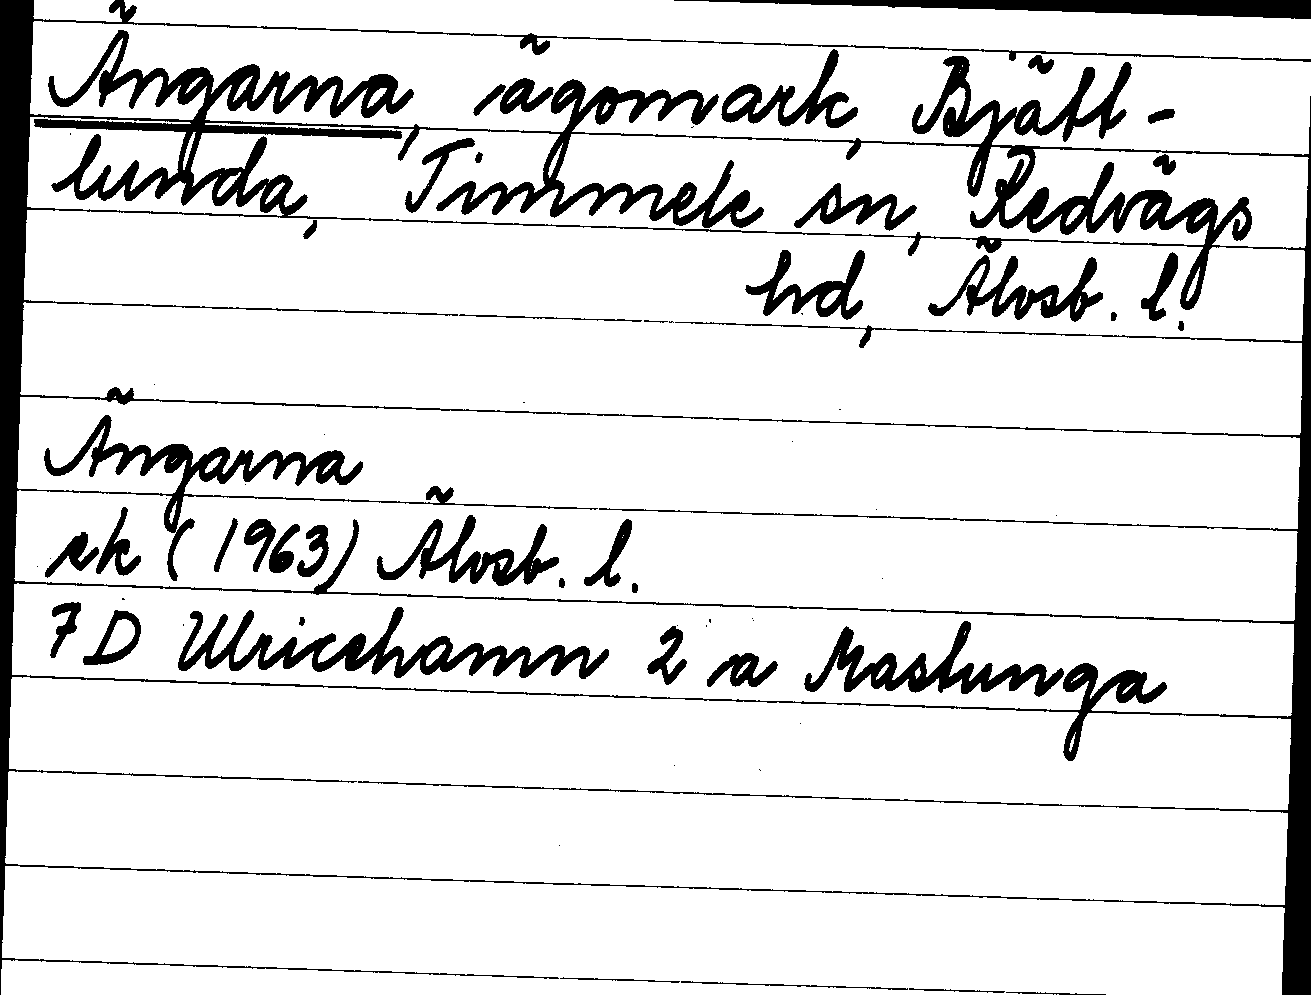 Ängarna, ägomark, Bjätt-
lunda, Timmele sn, Redvägs
hd, Älvsb. l.
Ängarna
ek (1963) Älvsb. l.
7 D Ulricehamn 2 a Mastunga